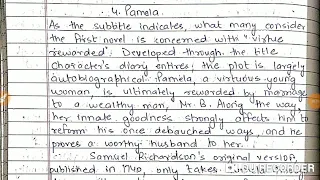 4. Pamela.
As the subtitle indicates, what many consider
the first novel is concerned with "virtue
rewarded". Developed through the title
character's diary entires, the plot is largely
autobiographical. Pamela, a virtuous young
woman, is ultimately rewarded by marriage
to a wealthy man, Mr. B. Along the way,
her innate goodness strongly affects him to
reform his once debauched ways, and he
proves a worthy husband to her.
Samuel Richardson's original version,
published in 1740, only takes
RECORDER